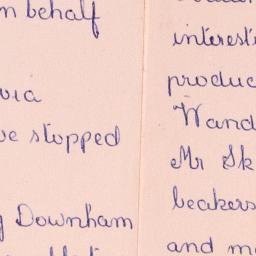 n behalf
via
ve stopped
g Downham
interesti
produc
Wand
Mr Sk
beakers
and m